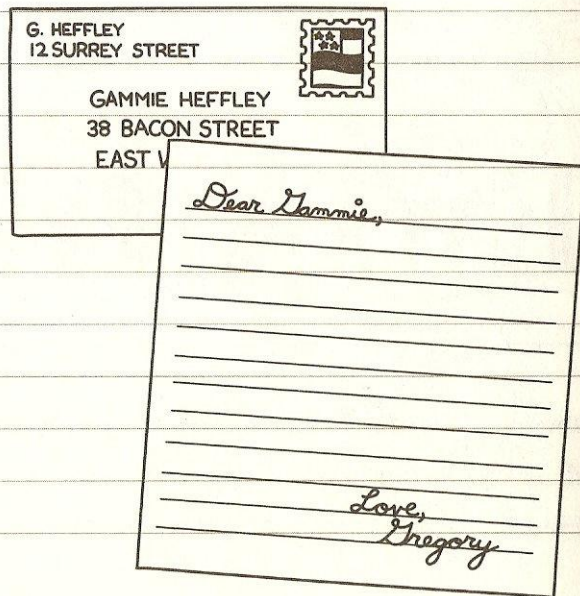 G. HEFFLEY
12 SURREY STREET
GAMMIE HEFFLEY
38 BACON STREET
EAST
Dear Gammie,
Love,
Gregory